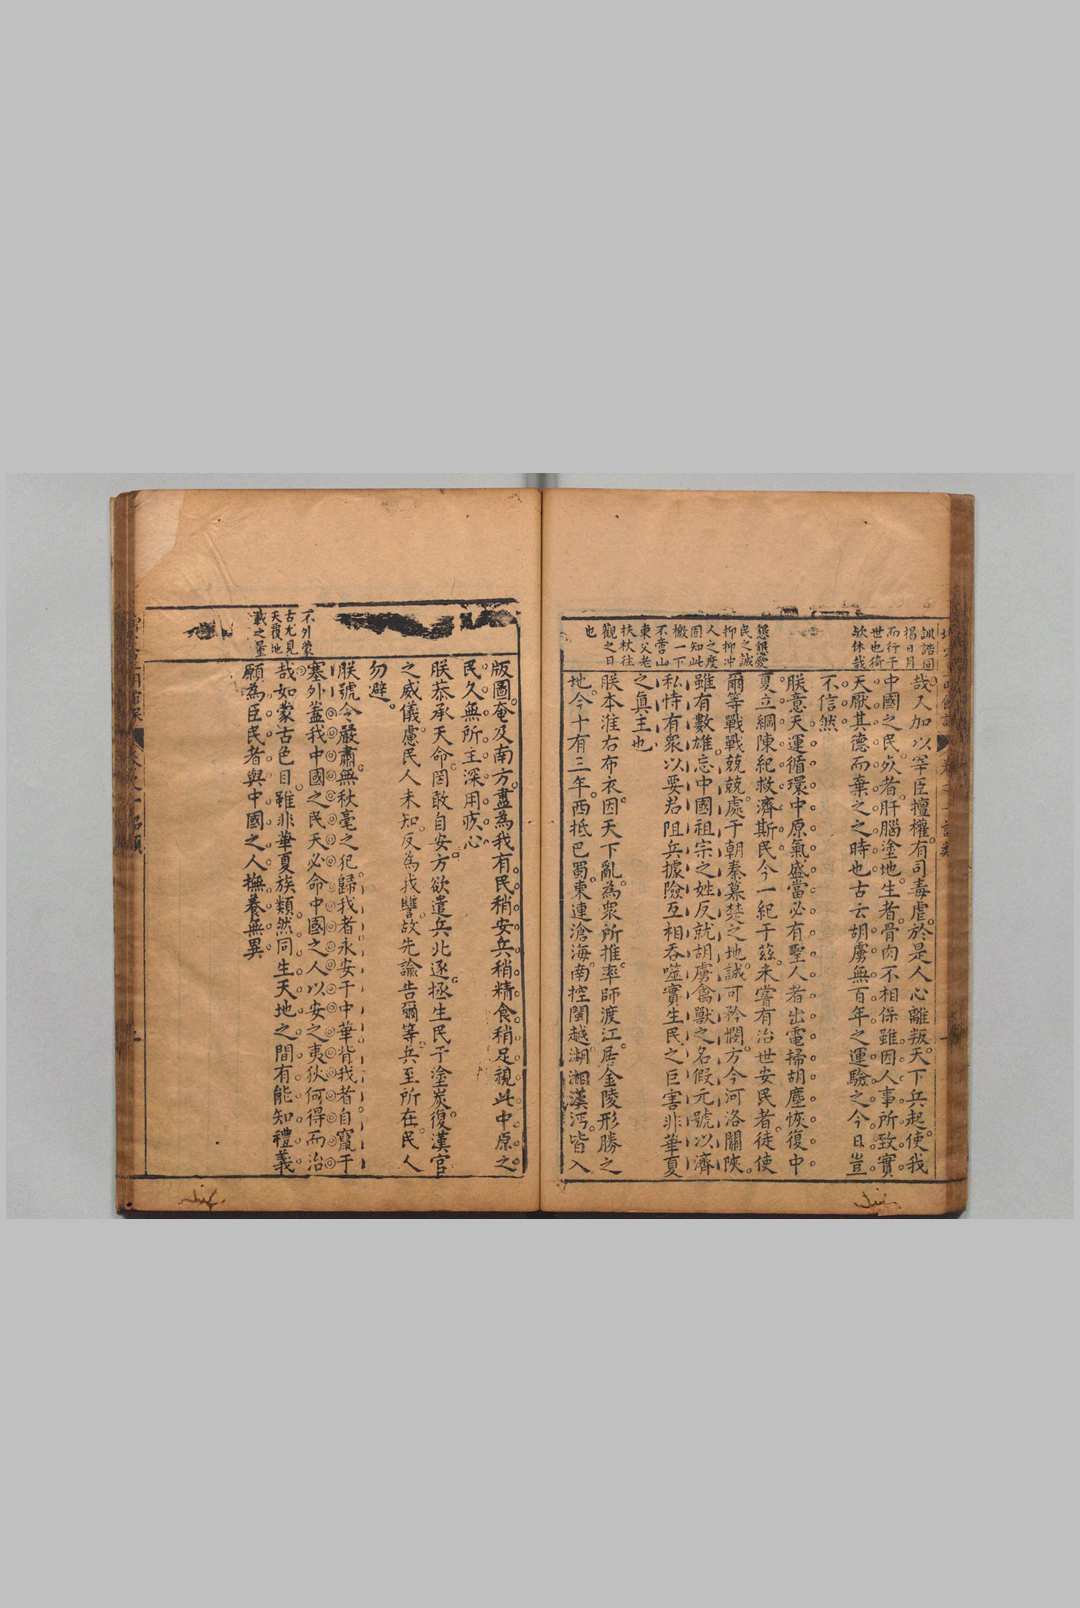 誥固
揭日月
而行于
世也猗
歟休哉
哉又加以宰臣擅權有司毒虐於是人心離叛天下兵起使我
中國之民死者肝腦塗地生者骨肉不相保雖因人事所致實
天厭其德而棄之之時也古云胡虜無百年之運驗之今日豈
不信然
朕意天運循環中原氣盛當必有聖人者出電掃胡塵恢復中
夏立綱陳紀救濟斯民今一紀于茲未嘗有治世安民者徒使
爾等戰戰兢兢處于朝秦暮楚之地誠可矜憫方今河洛關陝
雖有數雄忘中國祖宗之姓反就胡虜禽獸之名假元號以濟
私恃有眾以要君阻兵據險互相吞噬實生民之巨害非華夏
之真主也
朕本淮右布衣因天下亂為眾所推率師渡江居金陵形勝之
地今十有三年西抵巴蜀東連滄海南控閩越湖湘漢沔皆入
愛
民之誠
抑抑沖
人之度
固知此
檄一下
不啻山
東父老
扶杖往
觀之日
也
版圖奄及南方盡為我有民稍安兵稍精食稍足視此中原之
民久無所主深用疚心
朕恭承天命罔敢自安方欲遣兵北逐拯生民于塗炭復漢官
之威儀慮民人未知反為我讐故先諭告爾等兵至所在民人
勿避
朕號令嚴肅無秋毫之犯歸我者永安于中華背我者自竄于
塞外蓋我中國之民天必命中國之人以安之夷狄何得而治
哉如蒙古色目雖非華夏族類然同生天地之間有能知禮義
願為臣民者與中國之人撫養無異
不外蒙
古尤見
天覆地
載之量